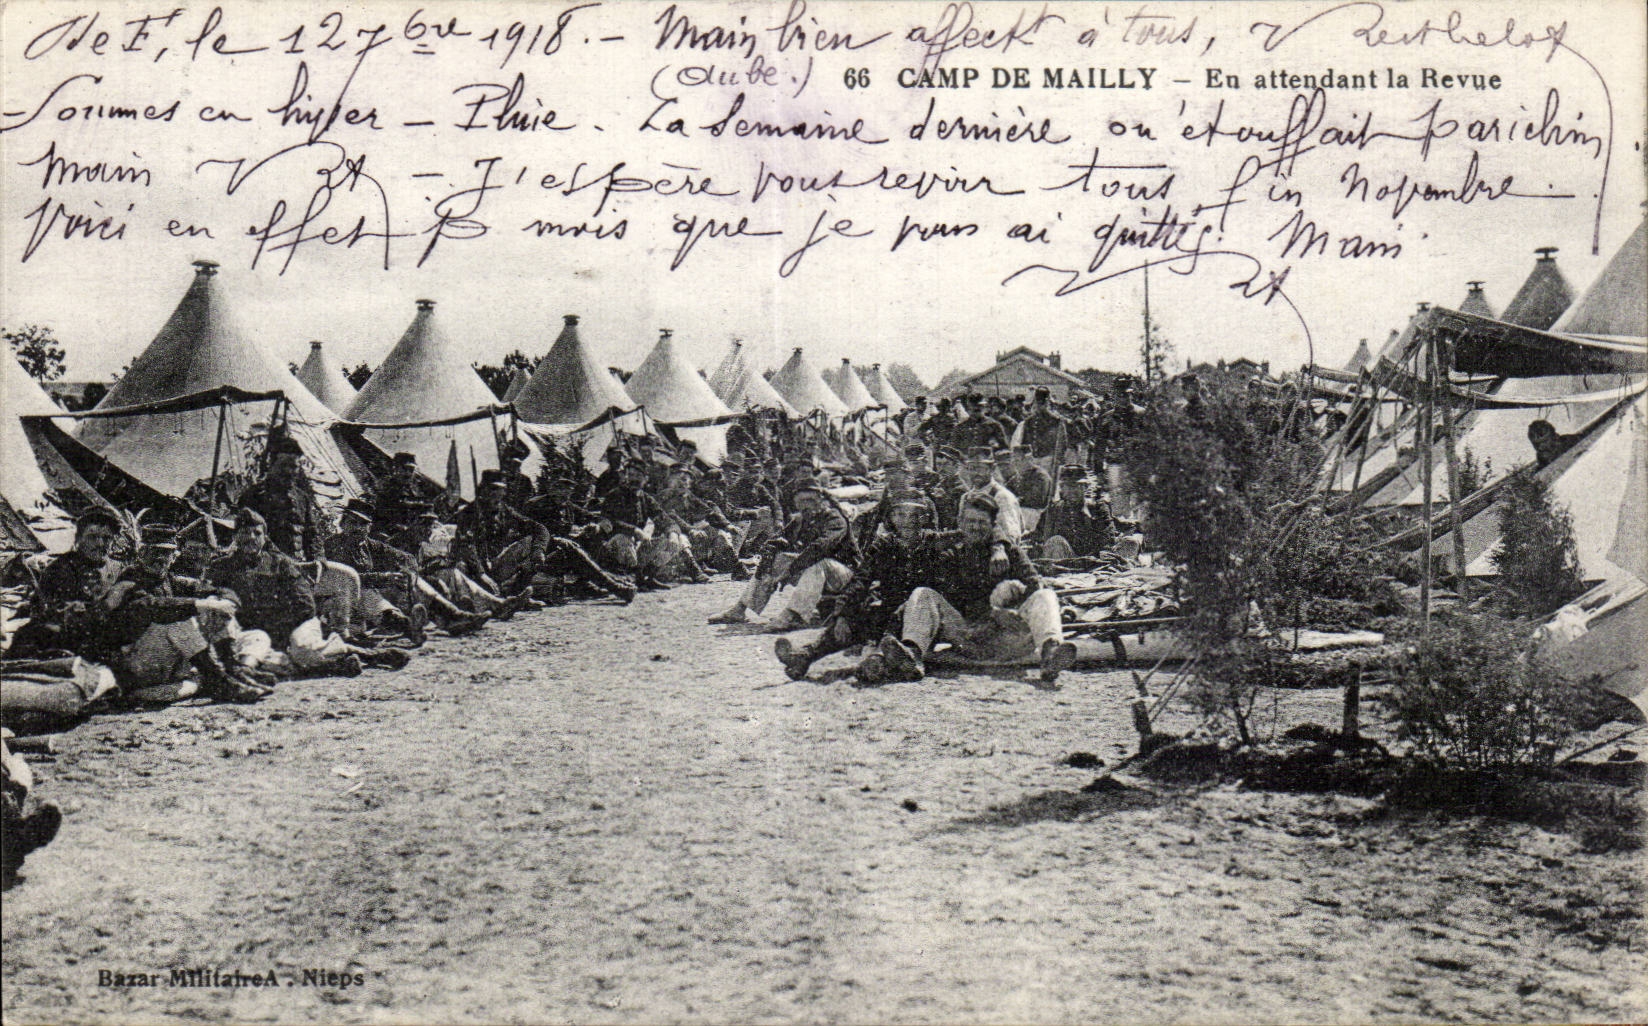 le 12 7bre 1918. - Main bien affectt à tous, V Berthelot
(Aube.) 66 CAMP DE MAILLY - En attendant la Revue
Sommes en hiver - Pluie. La semaine dernière on étouffait
Main V - J'espère vous revoir tous fin Novembre.
Voici en effet mois que je vous ai quittés. Main
Bazar Militaire A. Nieps